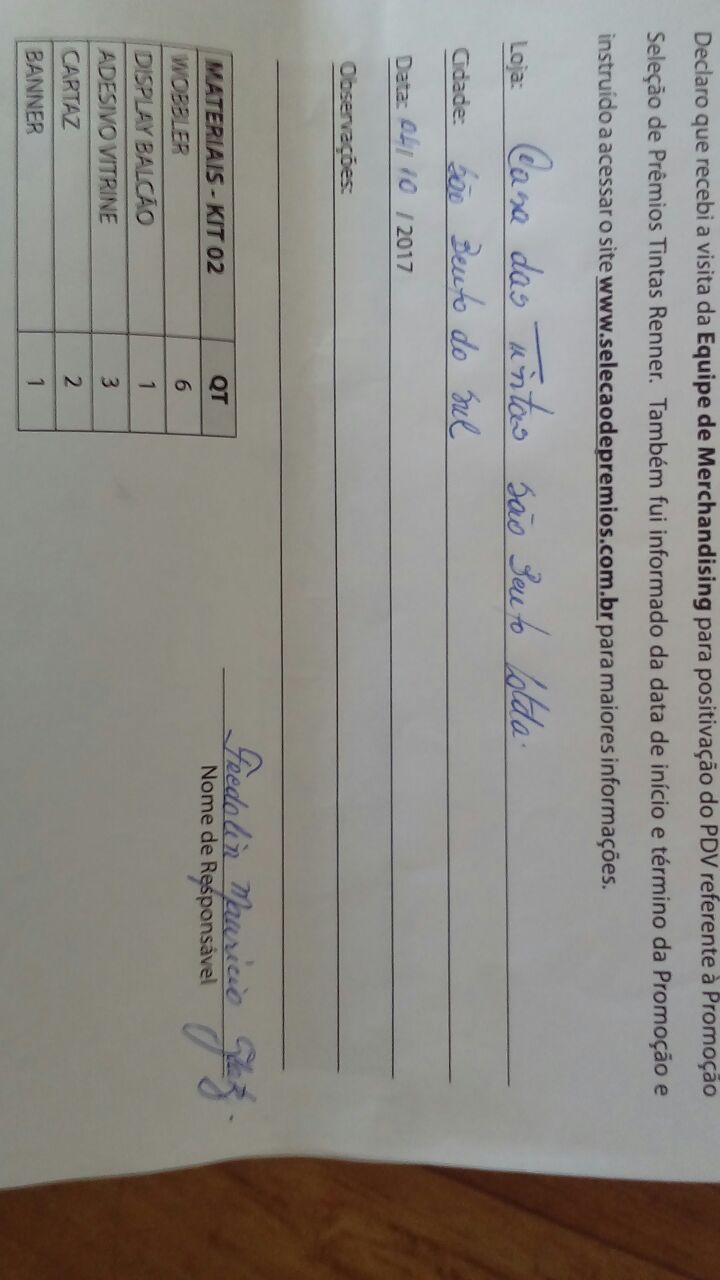 Declaro que recebi a visita da Equipe de Merchandising para positivação do PDV referente à Promoção
Seleção de Prêmios Tintas Renner. Também fui informado da data de início e término da Promoção e
instruído a acessar o site www.selecaodepremios.com.br para maiores informações.
Loja: Casa das Tintas São Bento Ltda.
Cidade: São Bento do Sul
Data: 04/10/2017
Observações:
MATERIAIS - KIT 02 QT
WOBBLER 6
DISPLAY BALCÃO 1
ADESIVO VITRINE 3
CARTAZ 2
BANNER 1
Mauricio
Nome de Responsável